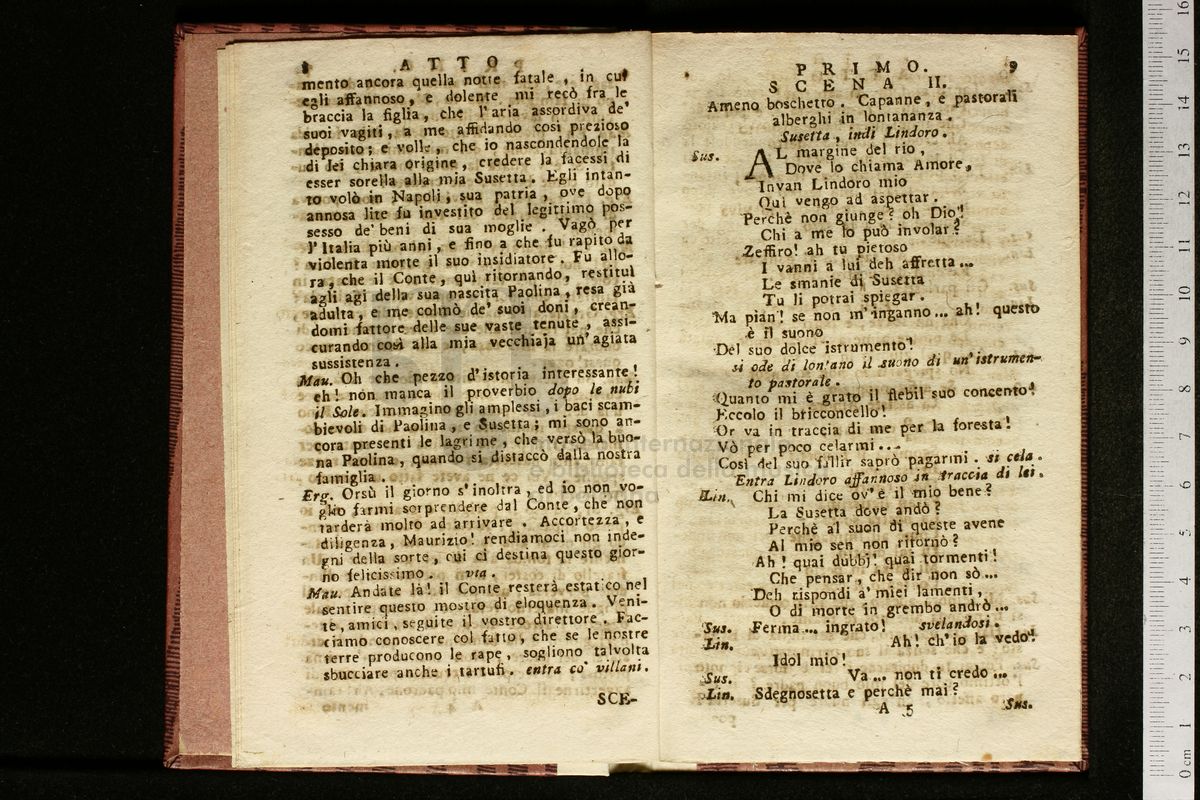 8 ATTO
mento ancora quella notte fatale, in cui
egli affannoso, e dolente mi recò fra le
braccia la figlia, che l'aria assordiva de'
suoi vagiti, a me affidando così prezioso
deposito; e volle, che io nascondendole la
di lei chiara origine, credere la facessi di
esser sorella alla mia Susetta. Egli intan-
to volò in Napoli, sua patria, ove dopo
annosa lite fu investito del legittimo pos-
sesso de' beni di sua moglie. Vagò per
l'Italia più anni, e fino a che fu rapito da
violenta morte il suo insidiatore. Fu allo-
ra, che il Conte, quì ritornando, restituì
agli agi della sua nascita Paolina, resa già
adulta, e me colmò de' suoi doni, crean-
domi fattore delle sue vaste tenute, assi-
curando così alla mia vecchiaja un'agiata
sussistenza.
Mau. Oh che pezzo d'istoria interessante!
eh! non manca il proverbio dopo le nubi
il Sole. Immagino gli amplessi, i baci scam-
bievoli di Paolina, e Susetta; mi sono an-
cora presenti le lagrime, che versò la buo-
na Paolina, quando si distaccò dalla nostra
famiglia.
Erg. Orsù il giorno s'inoltra, ed io non vo-
glio farmi sorprendere dal Conte, che non
tarderà molto ad arrivare. Accortezza, e
diligenza, Maurizio! rendiamoci non inde-
gni della sorte, cui ci destina questo gior-
no felicissimo. via.
Mau. Andate là! il Conte resterà estatico nel
sentire questo mostro di eloquenza. Veni-
te, amici, seguite il vostro direttore. Fac-
ciamo conoscere col fatto, che se le nostre
terre producono le rape, sogliono talvolta
sbucciare anche i tartufi. entra co' villani.
SCE-
PRIMO. 9
SCENA II.
Ameno boschetto. Capanne, e pastorali
alberghi in lontananza.
Susetta, indi Lindoro.
Sus. AL margine del rio,
Dove lo chiama Amore,
Invan Lindoro mio
Qui vengo ad aspettar.
Perchè non giunge? oh Dio!
Chi a me lo può involar?
Zeffiro! ah tu pietoso
I vanni a lui deh affretta...
Le smanie di Susetta
Tu li potrai spiegar.
Ma pian! se non m'inganno... ah! questo
è il suono
Del suo dolce istrumento!
si ode di lontano il suono di un'istrumen-
to pastorale.
Quanto mi è grato il flebil suo concento!
Eccolo il bricconcello!
Or va in traccia di me per la foresta!
Vò per poco celarmi...
Così del suo fallir saprò pagarmi. si cela.
Entra Lindoro affannoso in traccia di lei.
Lin. Chi mi dice ov'è il mio bene?
La Susetta dove andò?
Perchè al suon di queste avene
Al mio sen non ritornò?
Ah! quai dubbj! quai tormenti!
Che pensar, che dir non sò...
Deh rispondi a' miei lamenti,
O di morte in grembo andrò...
Sus. Ferma... ingrato! svelandosi.
Lin. Ah! ch'io la vedo!
Idol mio!
Sus. Va... non ti credo...
Lin. Sdegnosetta e perchè mai?
A 5 Sus.